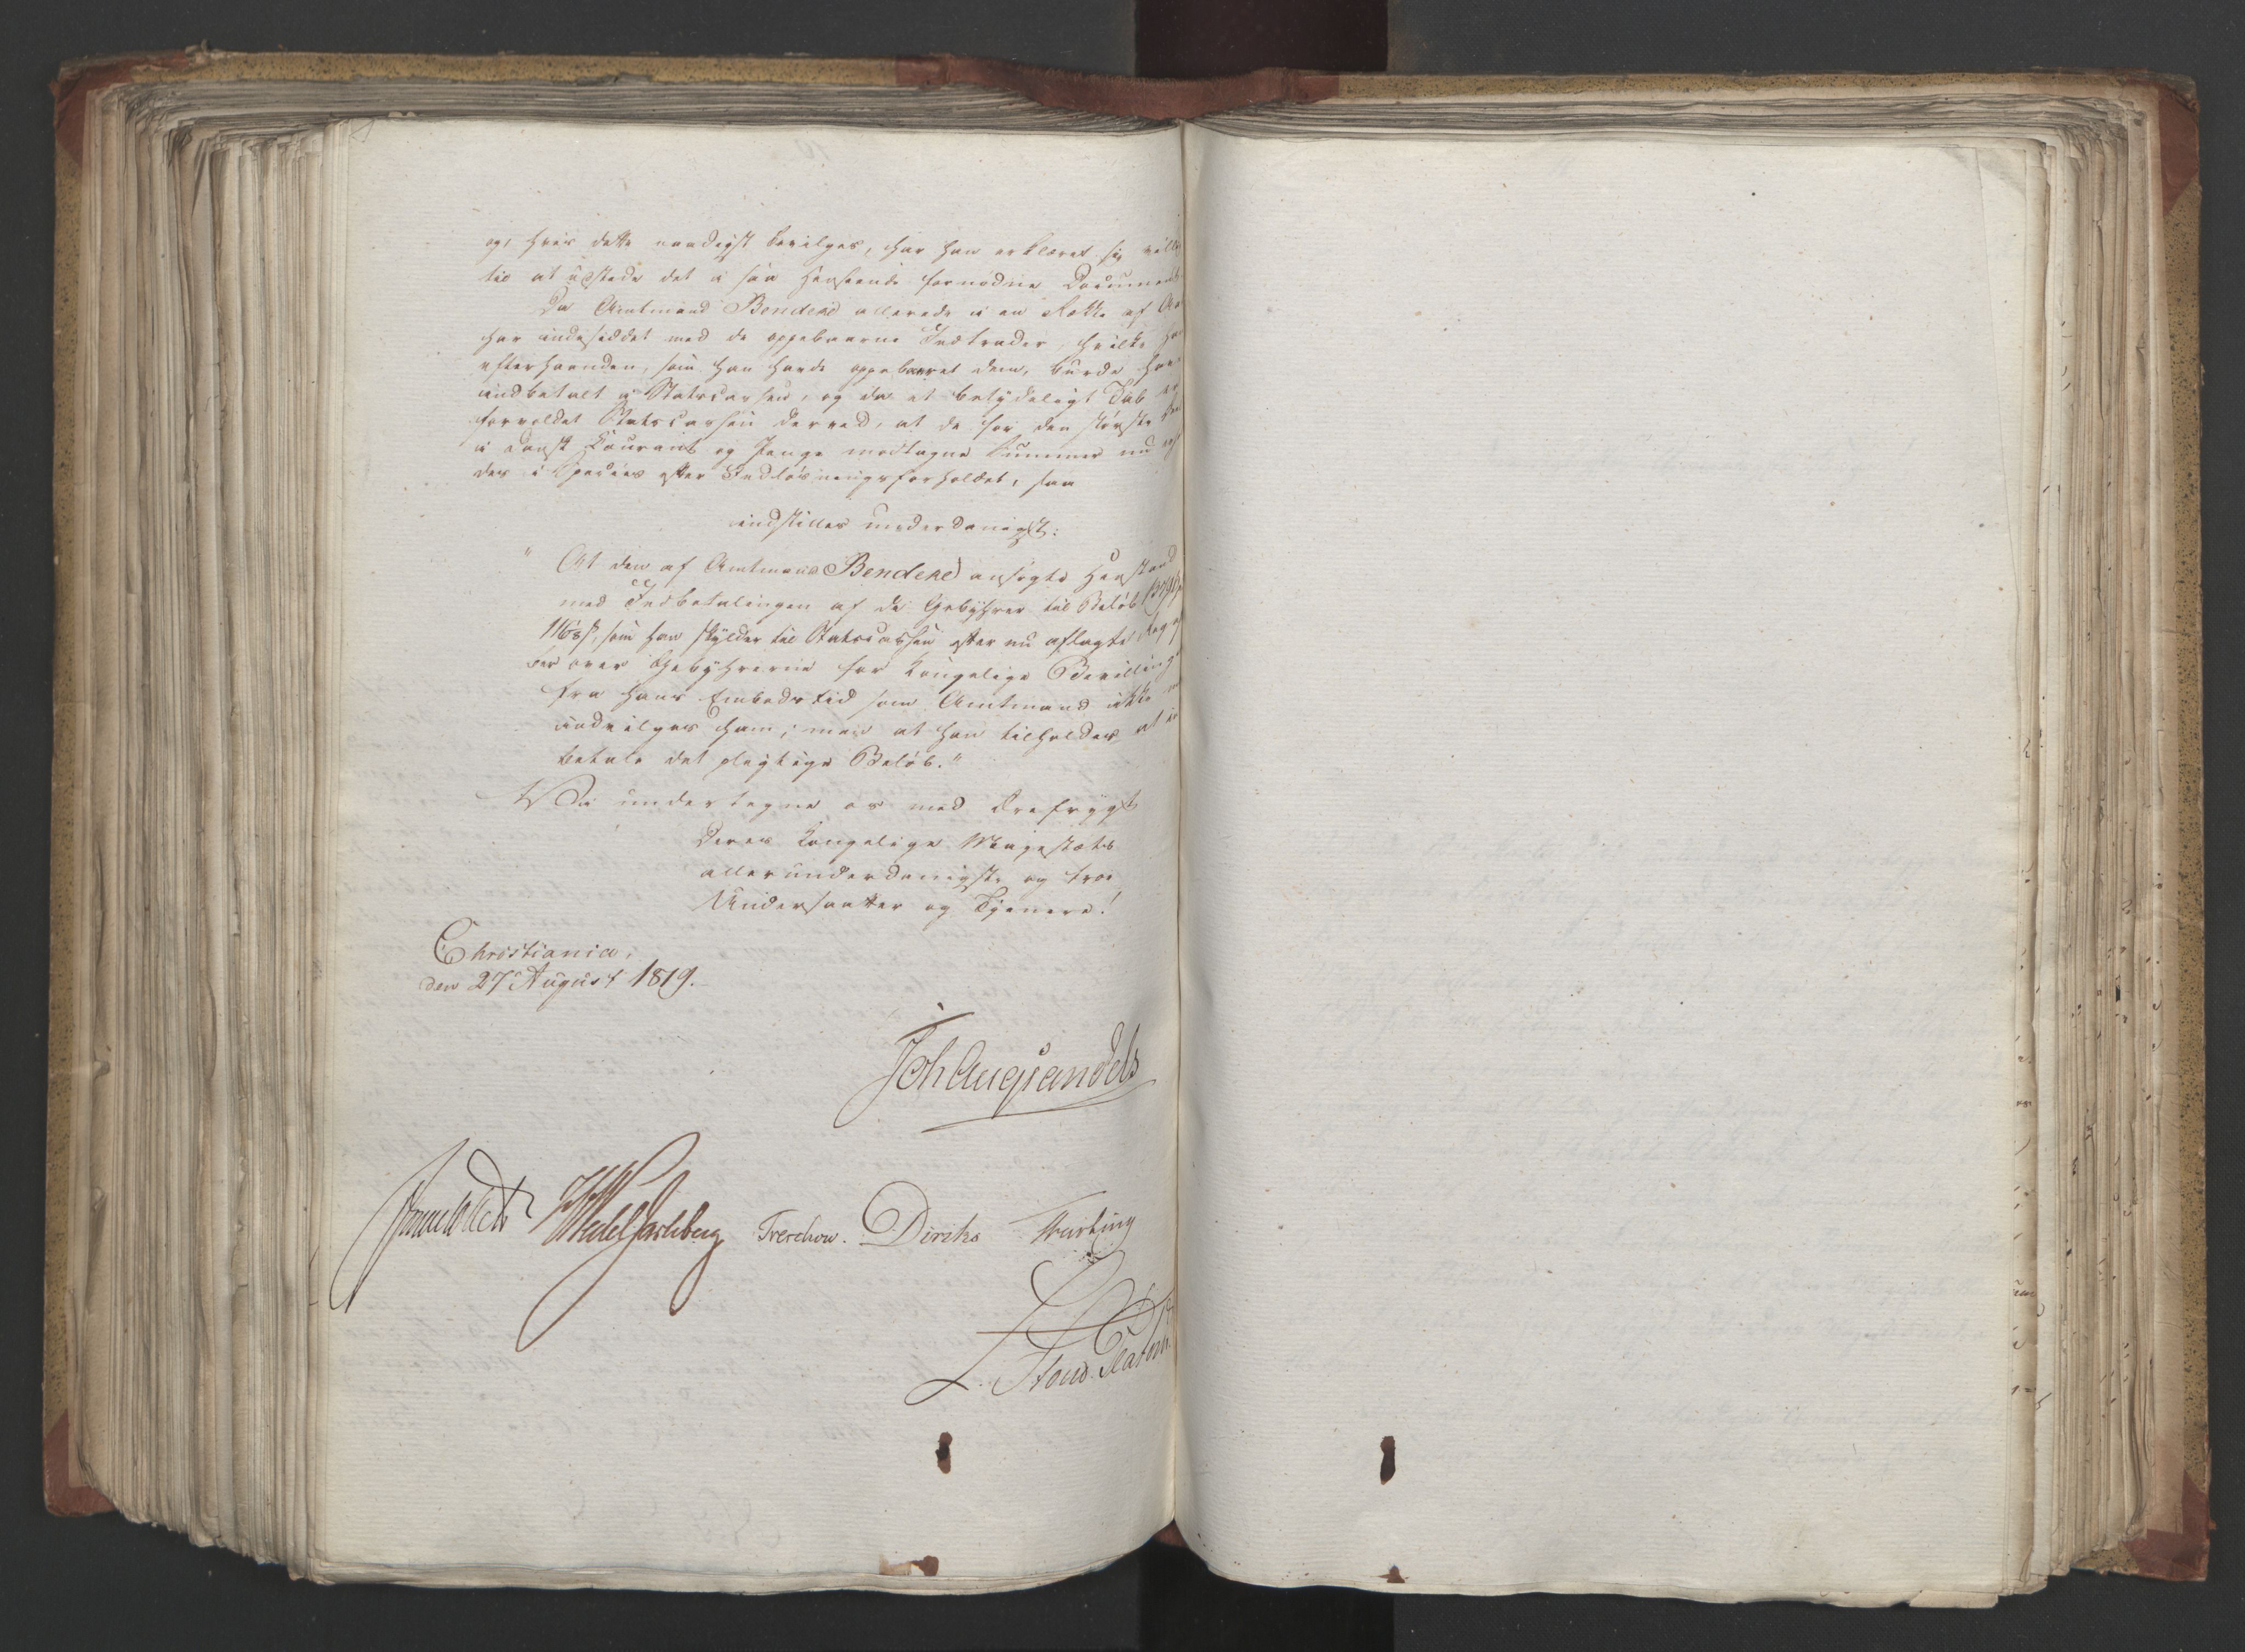 og, hvis dette naadigst bevilges, har han erklæret sig
til at udstede det i saa Henseende fornødne
Da Amtmand Bendeke allerede i en Række af
har indesiddet med de oppebaarne Indtrader, hvilke
efterhaanden, som han havde oppebaaret dem, burde
indbetalt i Statscassen, og da et betydeligt Tab
forvoldet Statscassen derved, at de for den største
i dansk Courant og Penge modtagne Summer nu
des i Species efter Indløsningsforholdet, saa
indstilles underdanigst:
"At den af Amtmand Bendeke ansøgte Henstand
med Indbetalingen af de Gebyhrer til Beløb
116 ß, som han skylder til Statscassen efter nu aflagte
ber over Gebyhrerne for Kongelige
fra hans Embedstid som Amtmand ikke
indvilges ham; men at han tilholdes at
betale det pligtige Beløb."
Vi undertegne os med Ærefrygt
Deres Kongelige Majestæts
allerunderdanigste og troe
Undersaatter og Tjenere!
Christiania,
den 27 August 1819.
Joh Aug Sandels
Sommerfeldt Wedel Jarlsberg Treschow. Diriks Fasting
L. Stoud Platou